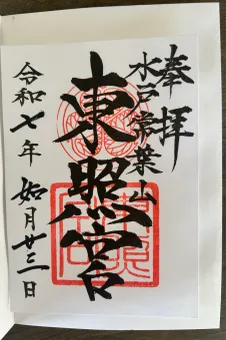 奉拝
水戸常葉山
東照宮
令和七年 如月廿三日